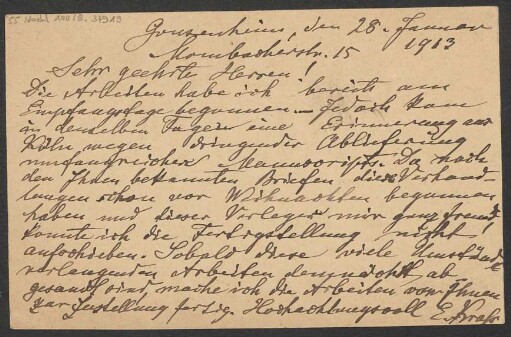 55 Nachl 100/B, 37919
Gonzenheim, den 28. Januar
Mombacherstr. 15 1913
Sehr geehrte Herren!
Die Arbeiten habe ich bereits am
Empfangstage begonnen. – Jedoch kam
in denselben Tagen eine Erinnerung aus
Köln wegen dringender Ablieferung
umfangreicher Manuscripte. Da nach
den Ihnen bekannten Briefen diese Verhand-
lungen schon vor Weihnachten begonnen
haben und dieser Verleger mir ganz fremd,
konnte ich die Fertigstellung nicht
aufschieben. Sobald diese viele Umstände
verlangenden Arbeiten demnächst ab
gesandt sind, mache ich die Arbeiten von Ihnen
zur Zustellung fertig. Hochachtungsvoll E.